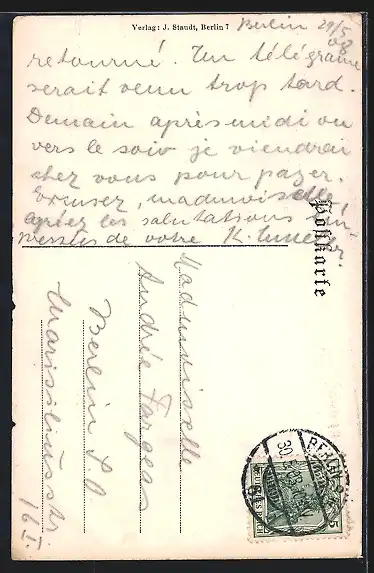 Verlag: J. Staudt, Berlin 7
Berlin 29/5
08
retourné. Un télégramme
serait venu trop tard.
Demain après midi ou
vers le soir je viendrai
chez vous pour payer.
Excusez, mademoiselle,
agréez les salutations em-
pressées de votre K.
Postkarte
Mademoiselle
Andrée Farges
Berlin S.O
16 I.
BERLIN
30.5.08
DEUTSCHES REICH
5